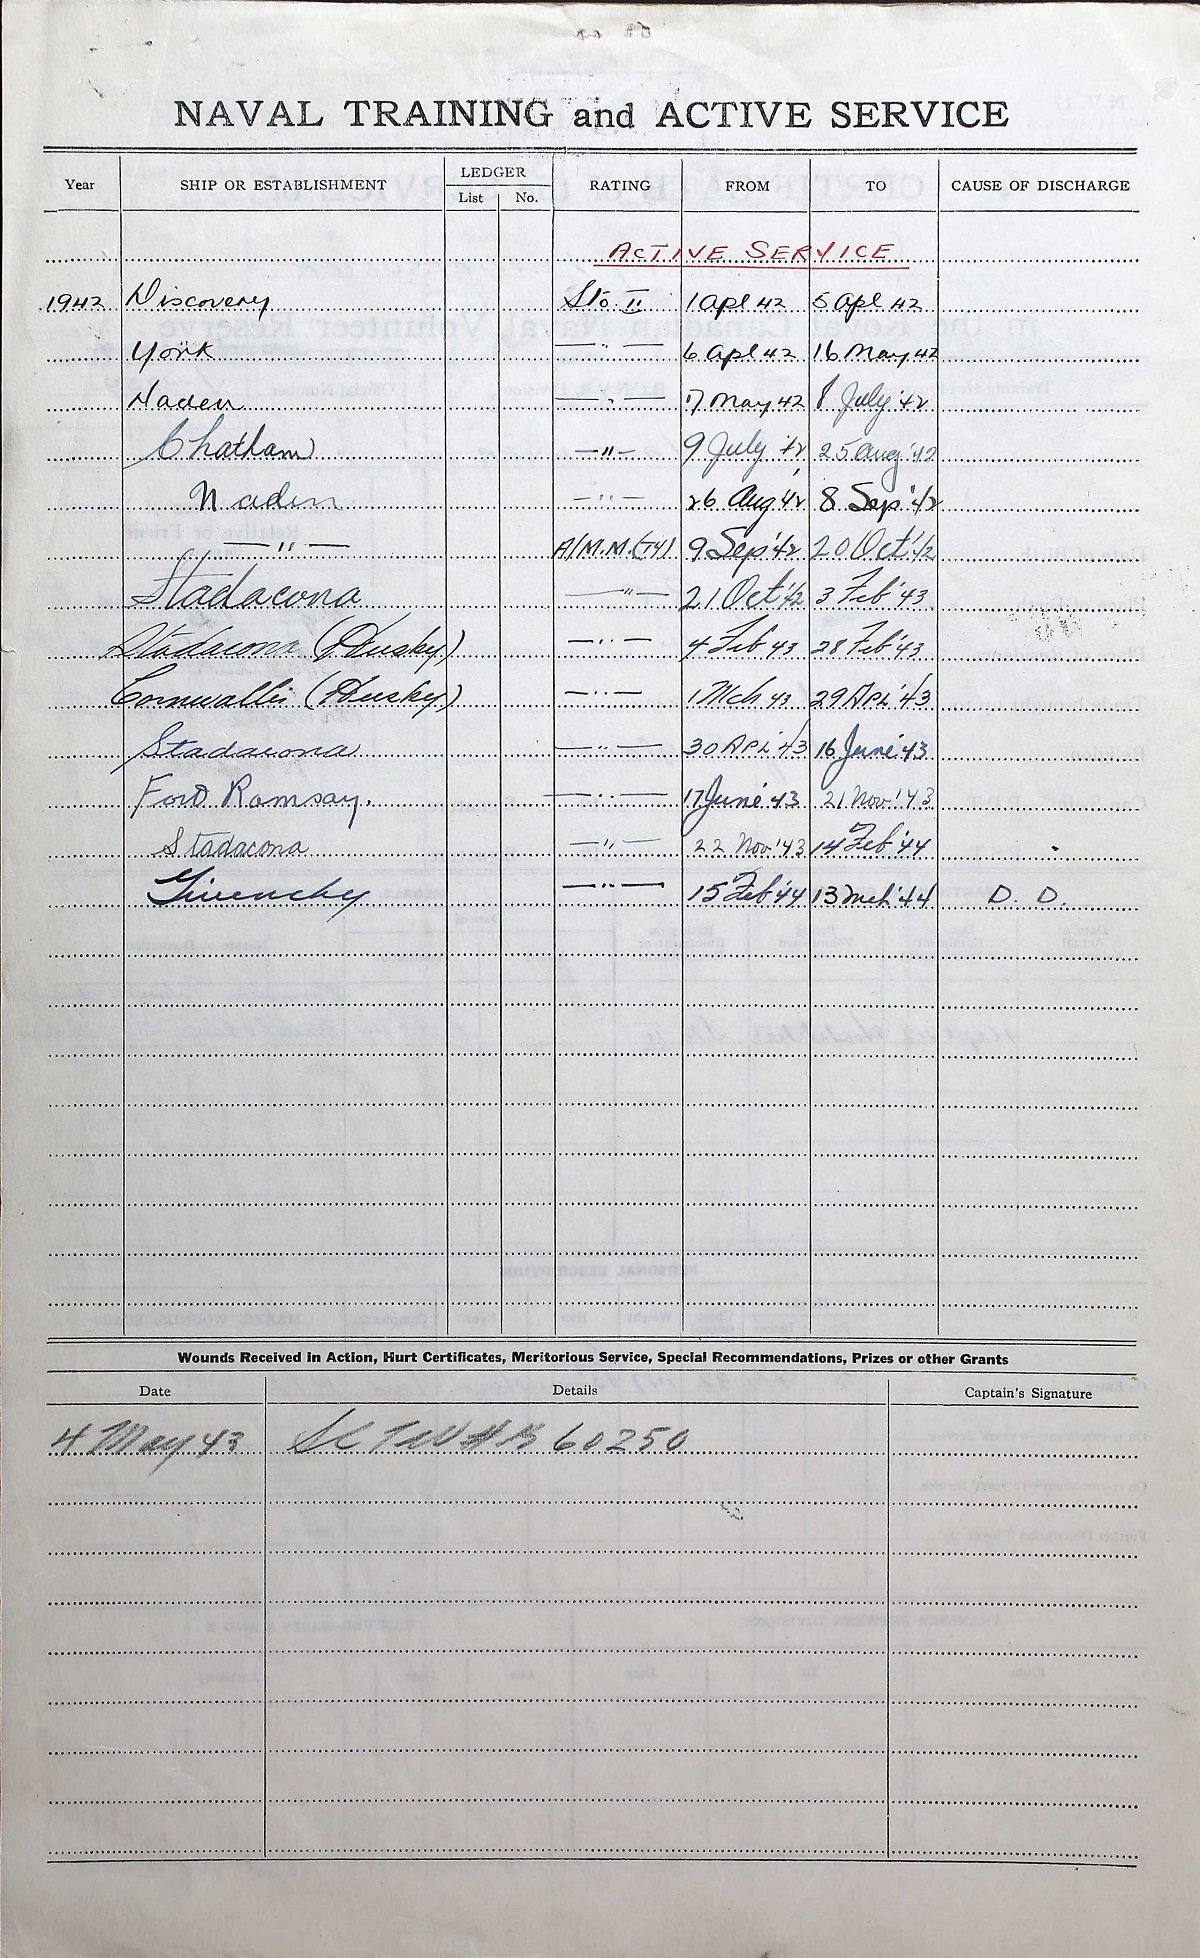 NAVAL TRAINING and ACTIVE SERVICE
Year SHIP OR ESTABLISHMENT LEDGER List No. RATING FROM TO CAUSE OF DISCHARGE
ACTIVE SERVICE
1942 Discovery Sto. II 1 Apl 42 5 Apl 42
York —"— 6 Apl 42 16 May 42
Naden —"— 17 May 42 8 July '42
Chatham —"— 9 July '42 25 Aug '42
Naden —"— 26 Aug '42 8 Sep '42
—"— A/M.M.(Ty) 9 Sep '42 20 Oct '42
Stadacona —"— 21 Oct '42 3 Feb '43
Stadacona (Husky) —"— 4 Feb 43 28 Feb '43
Cornwallis (Husky) —"— 1 Mch 43 29 Apl '43
Stadacona —"— 30 Apl '43 16 June '43
Fort Ramsay. —"— 17 June '43 21 Nov '43
Stadacona —"— 22 Nov '43 14 Feb '44
Givenchy —"— 15 Feb '44 13 Mch '44 D. D.
Wounds Received in Action, Hurt Certificates, Meritorious Service, Special Recommendations, Prizes or other Grants
Date Details Captain's Signature
4 May 43 60250